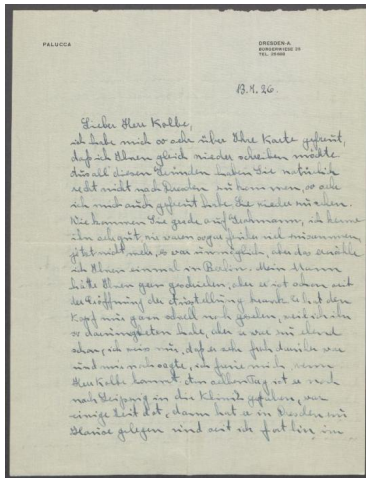 PALUCCA
DRESDEN-A.
BÜRGERWIESE 25
TEL.
26.
Lieber Herr Kolbe,
ich habe mich so sehr über Ihre Karte gefreut,
daß ich Ihnen gleich wieder schreiben möchte
aus all diesen Gründen haben Sie natürlich
recht nicht nach Dresden zu kommen, so sehr
ich mich auch gefreut habe Sie wieder zu sehen.
Wie kommen Sie gerade auf ich kenne
ihn sehr gut, wir waren sogar früher viel zusammen,
jetzt nicht mehr, es war unmöglich, aber das erzähle
ich Ihnen einmal in Berlin. Mein Mann
hätte Ihnen gern geschrieben, aber er ist schon seit
der Eröffnung der Ausstellung krank. Er hat den
Kopf nur ganz schnell noch gesehen, weil ich ihn
so darum gebeten habe, aber es war ihm elend
schon, ich weiß nur, daß er sehr froh darüber war
und mir noch sagte, ich freue mich, wenn
Herr Kolbe kommt. Am selben Tag ist er noch
nach Leipzig in die Klinik gefahren, war
einige Zeit dort, dann hat er in Dresden zu
Hause gelegen und seit ich fort bin im